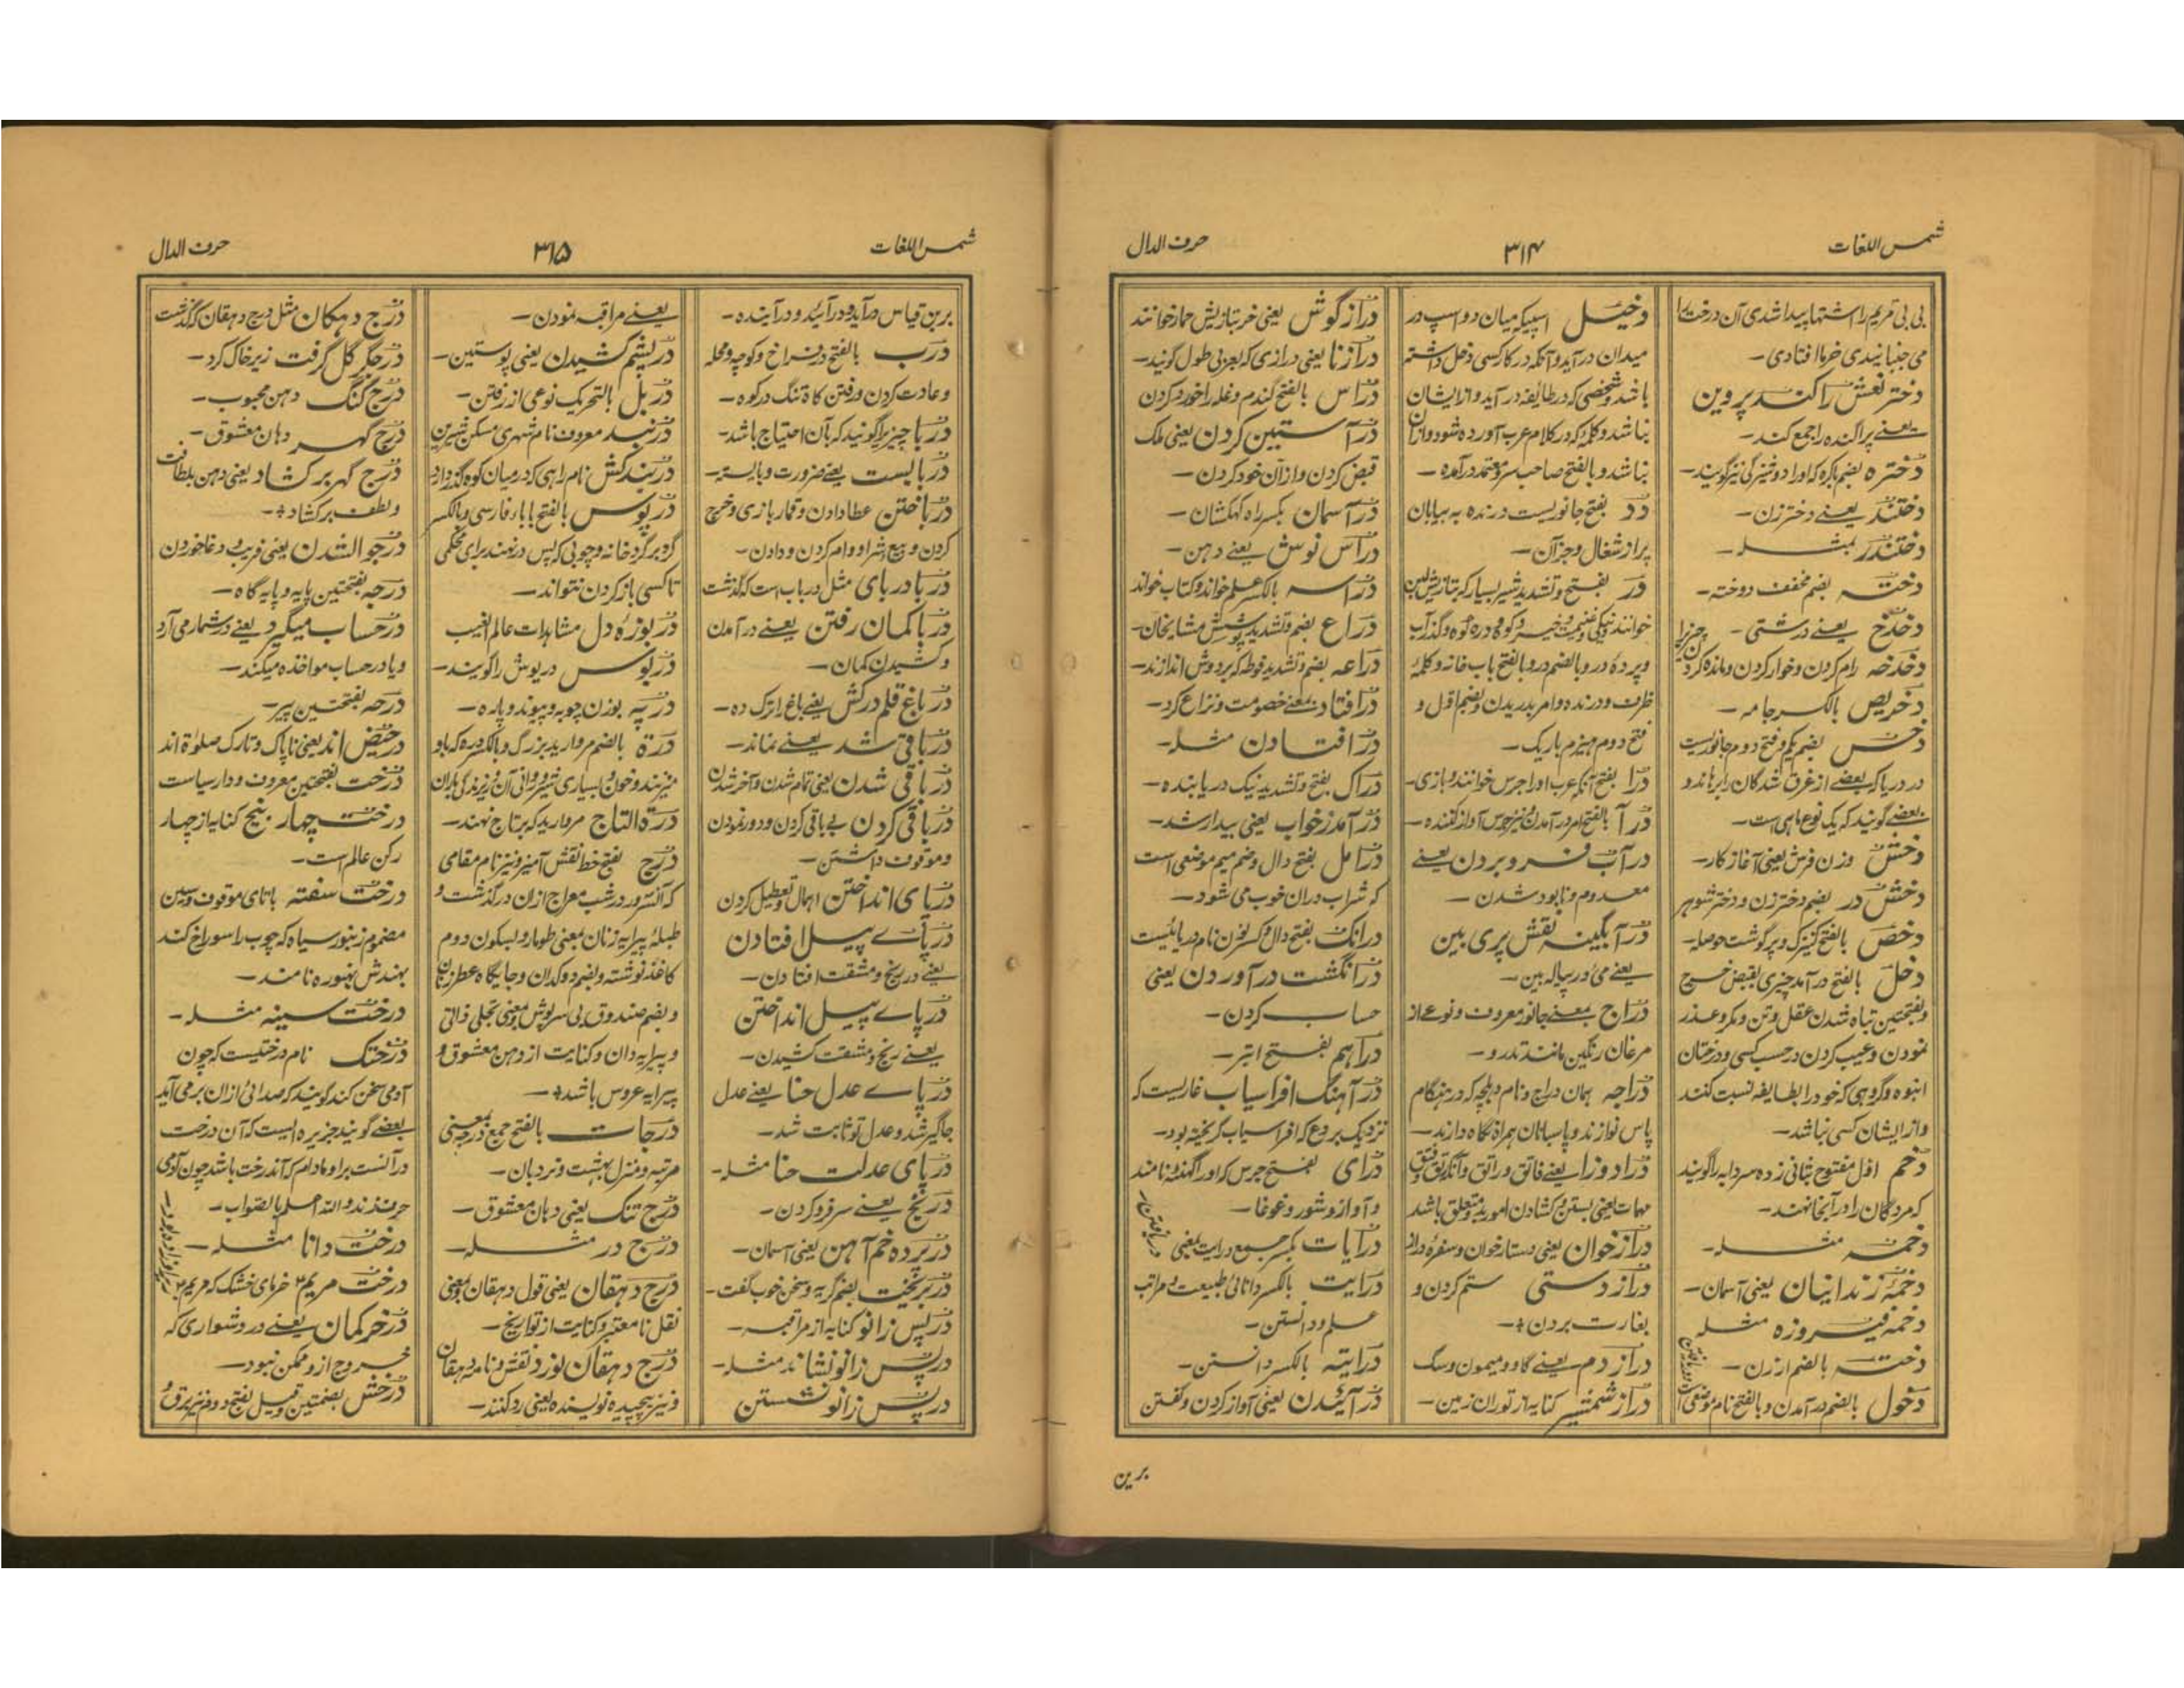 شمس اللغات
۳۱۴
حرف الدال
بی بی مریم را اشتها پیدا شدی آن درخت را
می جنبانیدی خرما افتادی –
دختر نعش را کند پروین
یعنے پراگنده را جمع کند –
دختره بضم باکره که او را دوشیزگی نیز گویند –
دختند یعنے دختر زن –
دختندر بمثله –
دخته بضم مخفف دوخته –
دخدخ یعنے درشتی –
دخدخه رام کردن و خوار کردن و مانده کردن
دخریص بالکسر جامه –
دخس بضم یکم و فتح دوم جانوریست
در دریا که بعضے از غرق شدگان را برهاند و
بعضے گویند که یک نوع ماهی است –
دخش وزن فرش یعنی آغاز کار –
دخش در بضم دختر زن و دختر شوهر
دخص بالفتح کنیزک و پرگوشت حوصله –
دخل بالفتح در آمد چیزی نقیض خرج
و بفتحتین تباه شدن عقل و تن و مکر و عذر
نمودن و عیب کردن در حسب کسی و درختان
انبوه و گروهی که خود را بطایفه نسبت کنند
و از ایشان کسی نباشد –
دخم اول مفتوح بثانی زده سردابه را گویند
که مردگان را در آنجا نهند –
دخمه مثله –
دخمهٔ زندانیان یعنی آسمان –
دخمه فیروزه مثله
دخنه بالضم ارزن –
دخول بالضم در آمدن و بالفتح نام موضعی
دخیل اسپیکه میان دو اسپ در
میدان در آید و آنکه در کار کسی دخل داشته
باشد و شخصی که در طائفه در آید و از ایشان
نباشد و کلمه که در کلام عرب آورده شود و از آن
نباشد و بالفتح صاحب سر و معتمد در آمده –
دد بفتح جانوریست درنده به بیابان
پر از شغال و جز آن –
در بفتح و تشدید شیر بسیار که بتازیش لبن
خوانند و نیکی و غنیمت و خیر و کوه و دره کوه و گذر آب
و پرده در و بالضم در و بالفتح باب خانه و کلمهٔ
ظرف و درنده و امر بدریدن و بضم اول و
فتح دوم هیزم باریک –
درا بفتح آنکه عرب او را جرس خوانند و بازی –
درآ بالفتح امر در آمدن و نیز جرس آواز کننده –
درآب فرو بردن یعنے
معدوم و نابود شدن –
درآبگینه نقش پری بین
یعنے می در پیاله بین –
دراج بمعنے جانور معروف و نوعے از
مرغان رنگین مانند تدرو –
دراجه همان دراج و نام دیلچه که در هنگام
پاس نوازند و پاسبانان همراه نگاه دارند –
دراد وزا یعنے فاتق و راتق و آنکه رتق و فتق
مهمات یعنی بستن و کشادن امور بدو متعلق باشد
دراز خوان یعنی دستار خوان و سفره دراز
دراز دستی ستم کردن و
بغارت بردن +
دراز دم یعنے گاو و میمون و سگ
دراز شمشیر کنایه از توران زمین –
دراز گوش یعنی خر بتازیش حمار خوانند
درازنا یعنی درازی که بعربی طول گویند –
دراس بالفتح گندم و غله را خورد کردن
درآستین کردن یعنی ملک
قبض کردن و از آن خود کردن –
درآسمان بکسر راه کهکشان –
درآس نوش یعنے دهن –
دراسه بالکسر علم خواند و کتاب خواند
دراع بضم و تشدید پوشش مشایخان –
دراعه بضم و تشدید فوطه که بر دوش اندازند –
درافتاد بمعنے خصومت و نزاع کرد –
درافتادن مثله –
دراک بفتح و تشدید نیک دریابنده –
درآمد ز خواب یعنی بیدار شد –
درامل بفتح دال و ضم میم موضعی است
که شراب دران خوب می شود –
درانک بفتح دال و کسر نون نام دریائیست
درانگشت در آوردن یعنی
حساب کردن –
دراهم بفتح ابتر –
درآهنگ افراسیاب غاریست که
نزدیک بردع که افراسیاب گریخته بود –
درای بفتح جرس که او را گهنٹه نامند
و آواز و شور و غوغا –
درایات بکسر جمع درایت بمعنی
درایت بالکسر دانائی طبیعت و مراتب
علم و دانستن –
درایته بالکسر دانستن –
درآئیدن یعنی آواز کردن و گفتن
برین
شمس اللغات
۳۱۵
حرف الدال
برین قیاس درآید و درآئید و درآینده –
درب بالفتح در فراخ و کوچه و محله
و عادت کردن و رفتن کاه تنگ در کوه –
دربا چیز را گویند که بآن احتیاج باشد –
دربایست یعنے ضرورت و بایسته –
درباختن عطا دادن و قمار بازی و خرج
کردن و بیع و شرا و وام کردن و دادن –
دربا دربای مثل درباب است که گذشت
دربا کمان رفتن یعنے در آمدن
و کشیدن کمان –
درباغ قلم درکش یعنے باغ را ترک ده –
درباقی شد یعنے نماند –
درباقی شدن یعنی تمام شدن و آخر شدن
درباقی کردن بے باقی کردن و دور نمودن
و موقوف داشتن –
درپای انداختن اهمال و تعطیل کردن
درپاے پیل افتادن
یعنے در رنج و مشقت افتادن –
درپاے پیل انداختن
یعنے رنج و مشقت کشیدن –
درپاے عدل حنا یعنے عدل
جاگیر شد و عدل تو ثابت شد –
درپای عدلت حنا مثله –
دربخ یعنے سر فرو کردن –
درپرده خم آهن یعنی آسمان –
دربخیت بضم گریه و سخن خوب گفت –
درپس زانو کنایه از مراقبه –
درپس زانو نشاند مثله –
درپس زانو نشستن
یعنے مراقبه نمودن –
درپشم کشیدن یعنی پوستین –
دربل بالتحریک نوعی از رفتن –
دربند معروف نام شهری مسکن شیرین
دربند کش نام راهی که در میان کوه گذر دارد
درپوس بالفتح با بار فارسی و بالکسر
گرو بر گرد خانه و چوبی که پس در نهند برای محکمی
تا کسی باز کردن نتواند –
دربوزهٔ دل مشاهدات عالم الغیب
دریوس دریوش را گویند –
درپه بوزن چوبه و پیوند و پاره –
درة بالضم مروارید بزرگ و بالکسر دره که باو
میزنند و خون و بسیاری شیر و روانی آن و ریزندگی باران
درة التاج مروارید که بر تاج نهند –
درج بفتح خط نقش آمیز و نیز نام مقامی
که آنسرور در شب معراج ازان درگذشت و
طبلهٔ پیرایه زنان بمعنی طومار و بسکون دوم
کاغذ نوشته و بضم دوکدان و جایگاه عطر زنان
و بضم صندوق بی سرپوش بمعنی تجلی ذاتی
و پیرایه دان و کنایت از دهن معشوق و
پیرایه عروس باشد +
درجات بالفتح جمع درجه بمعنی
مرتبه و منزل بهشت و نردبان –
درج تنگ یعنی دهان معشوق –
درج در مثله –
درج دهقان یعنی قول دهقان بمعنی
نقل نا معتبر و کنایت از تواریخ –
درج دهقان نورد نقش نامه دهقان
و نیز پیچیده نویسنده یعنی رد کنند –
درج دهکان مثل درج دهقان که گذشت
درجگر گل گرفت زیر خاک کرد –
درج گنگ دهن محبوب –
درج گهر دهان معشوق –
درج گهر بر کشاد یعنی دهن بلطافت
و لطف بر کشاد +
درجوالشدن یعنی فریب و دغا خوردن
درجه بفتحتین پایه و پایه گاه –
درحساب میگیرد یعنے در شمار می آرد
و یا در حساب مواخذه میکند –
درحه بفتحتین پیر –
درحیض اند یعنی ناپاک و تارک صلوة اند
درخت بفتحتین معروف و دار سیاست
درخت چهار بیخ کنایه از چهار
رکن عالم است –
درخت سفته باتای موقوف و سین
مضموم زنبور سیاه که چوب را سوراخ کند
بهندش بهنوره نامند –
درخت سینه مثله –
درختک نام درختیست که چون
آدمی سخن کند گویند که صدائی ازان بر می آید
بعضے گویند جزیره ایست که آن درخت
درآنست برا و مادام که آن درخت باشد چون آدمی
حرف زند و الله اعلم بالصواب –
درخت دانا مثله –
درخت مریم خرمای خشک که مریم
درخر کمان یعنے در دشواری که
خروج ازو ممکن نبود –
درخش بضمتین و قیل بفتح دوم نیز برق و